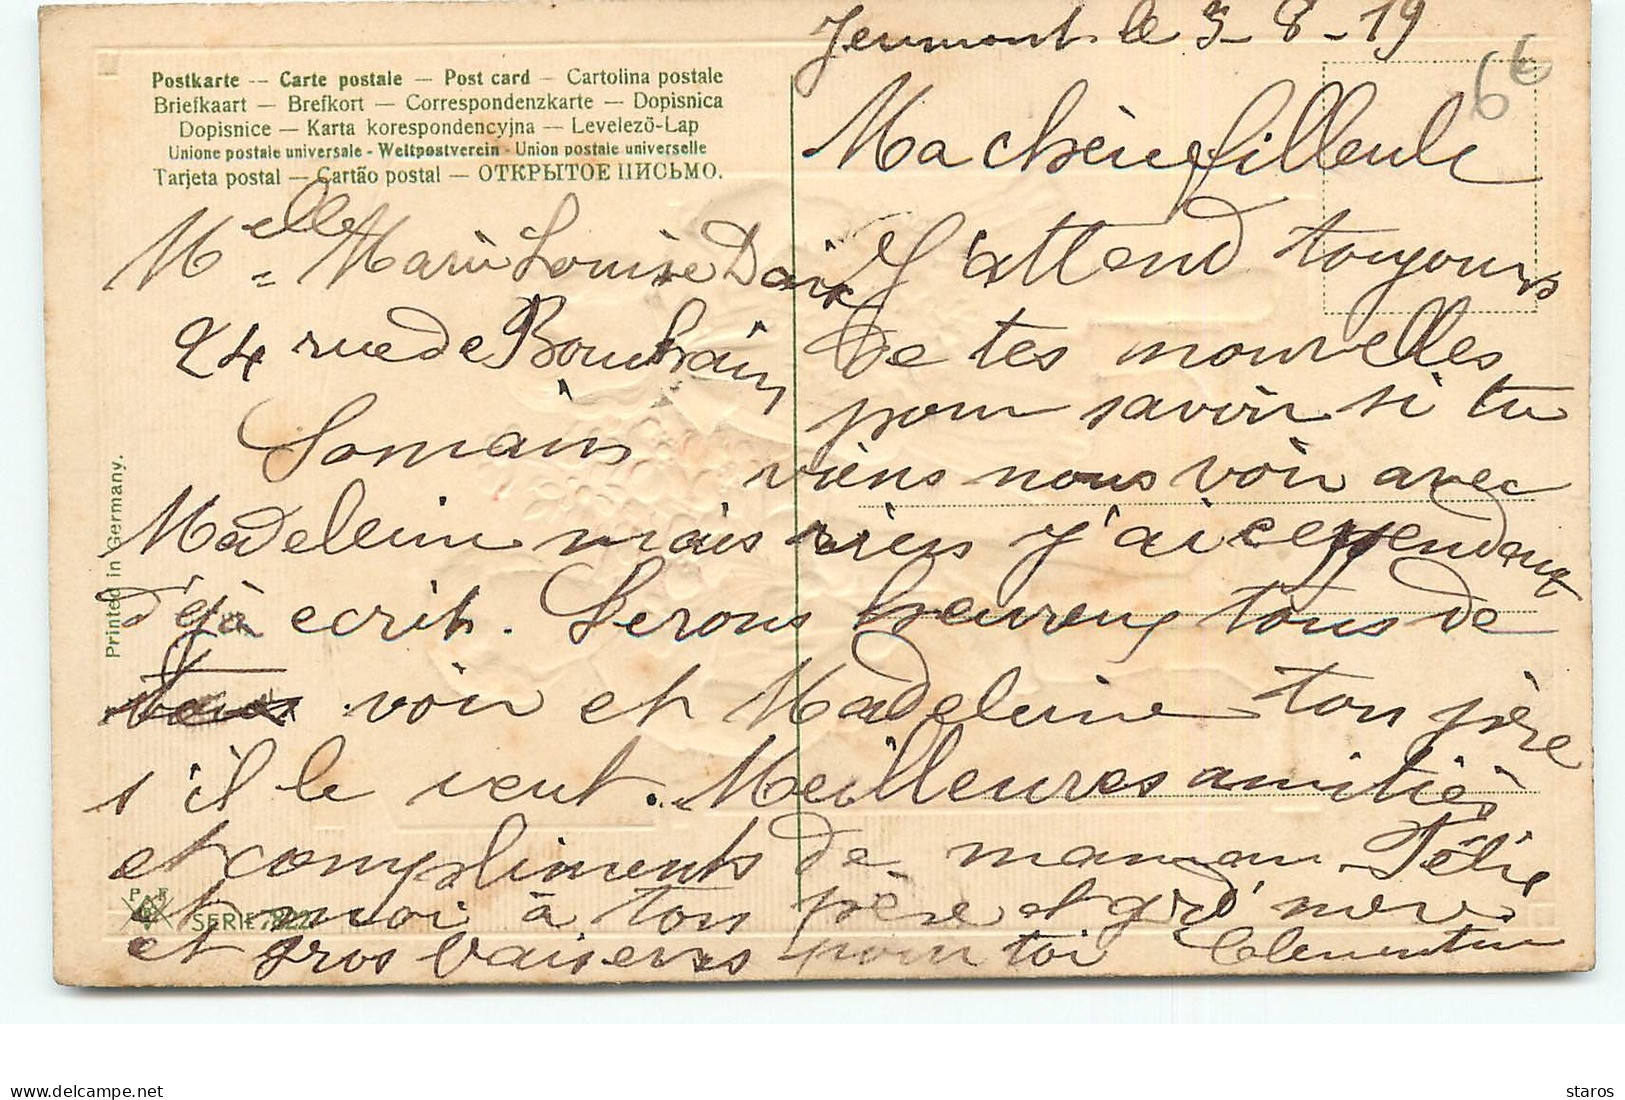 Jeumont le 3-8-19
66
Postkarte -- Carte postale — Post card — Cartolina postale
Briefkaart — Brefkort — Correspondenzkarte — Dopisnica
Dopisnice — Karta korespondencyjna — Levelező-Lap
Unione postale universale - Weltpostverein - Union postale universelle
Tarjeta postal — Cartão postal — ОТКРЫТОЕ ПИСЬМО.
Melle Marie Louise Daix
24 rue de Bouchain
Somain
Ma chère filleule
J'attend toujours
de tes nouvelles
pour savoir si tu
viens nous voir avec
Madeleine mais rien j'ai cependant
déjà ecrit. Serons heureux tous de
voir et Madeleine ton père
s'il le veut. Meilleures amitiés
et compliments de maman Félie
et moi à ton père et grd' mère
et gros baisers pour toi Clémentine
Printed in Germany.
P F
SERIE 7822
delcampe.net
staros